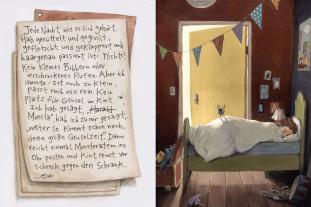 Jede Nacht wie es sich gehört.
Hab gerüttelt und gegrollt,
gefletscht und geklappert und
haargenau passiert ist: Nichts!
Kein kleines Bibbern oder
erschrockenes Rufen. Aber
ist noch zu klein,
passt auch nix rein. Kein
Platz für Grusel im Kint.
Ich hab gesagt,
Munsta", hab ich zu mir gesagt,
"weiter so kommt schon noch,
deine große Gruselzeit". Dann
reicht einmal Monsteratem ins
Ohr pusten und Kint rennt vor
schreck gegen den Schrank.